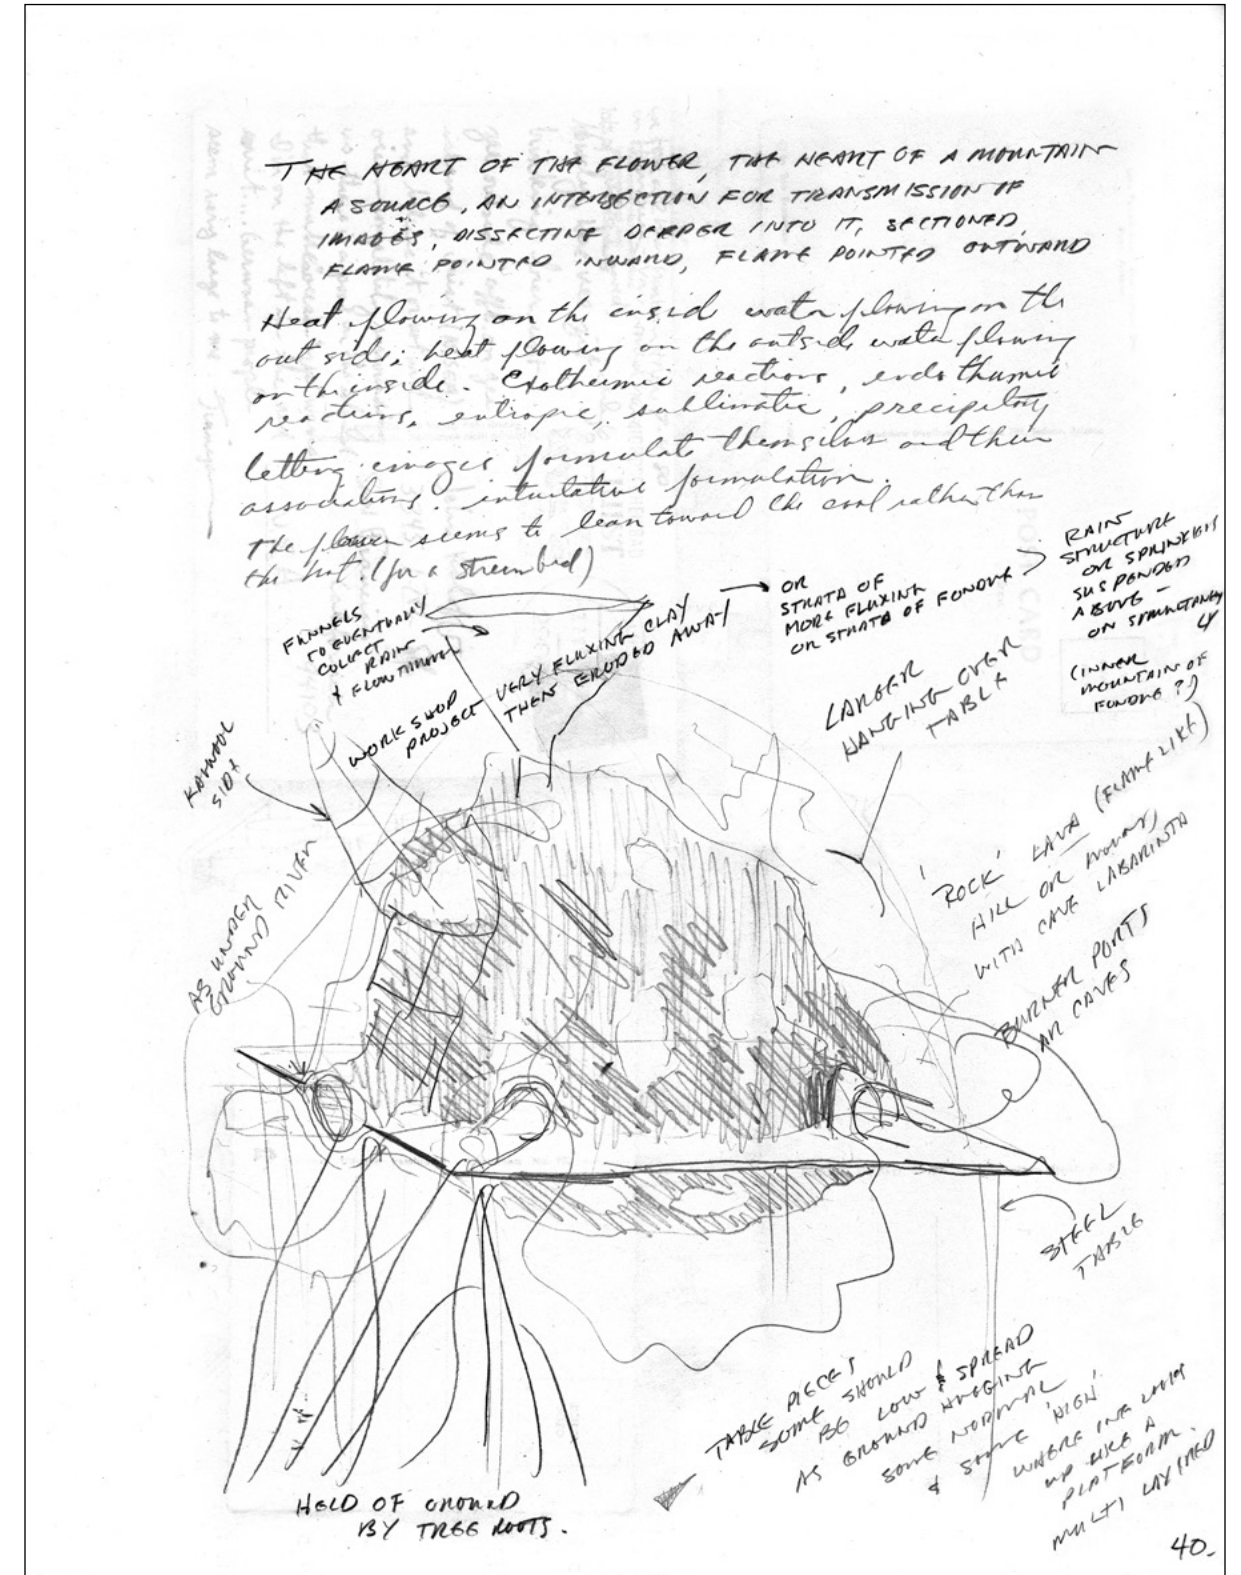 THE HEART OF THE FLOWER, THE HEART OF A MOUNTAIN
A SOURCE, AN INTERSECTION FOR TRANSMISSION OF
IMAGES, DISSECTING DEEPER INTO IT, SECTIONED,
FLAME POINTED INWARD, FLAME POINTED OUTWARD
Heat flowing on the insid water flowing on the
out side; heat flowing on the outside water flowing
on the inside. Exothermic reactions, endothermic
reactions, entropic, sublimatic, precipitory
letting images formulate themselves and their
associations. intuitative formulation.
the flower seems to lean toward the cool rather than
the hot. (for a streambed)
FUNNELS
TO EVENTUALLY
COLLECT
RAIN
& FLOW THROUGH
WORK SHOP
PROJECT
VERY FLUXING CLAY
THEN ERODED AWAY
OR
STRATA OF
MORE FLUXING
OR STRATA OF FONDUE
RAIN
STRUCTURE
OR SPRINKLERS
SUSPENDED
ABOVE -
(INNER
MOUNTAIN OF
FONDUE ?)
LARGER
HANGING OVER
TABLE
SIDE
AS UNDER
GROUND RIVER
'ROCK' LAVA (FLAME LIKE)
HILL OR MOUND,
WITH CAVE LABARINTA
BURNER PORTS
AR CAVES
STEEL
TABLE
TABLE PIECES
SOME SHOULD
BE LOW & SPREAD
AS GROUND HUGGING
SOME NORMAL
& SOME 'HIGH'
WHERE ONE LOOKS
UP LIKE A
PLATFORM.
MULTI LAYERED
HELD OF GROUND
BY TREE ROOTS.
40.